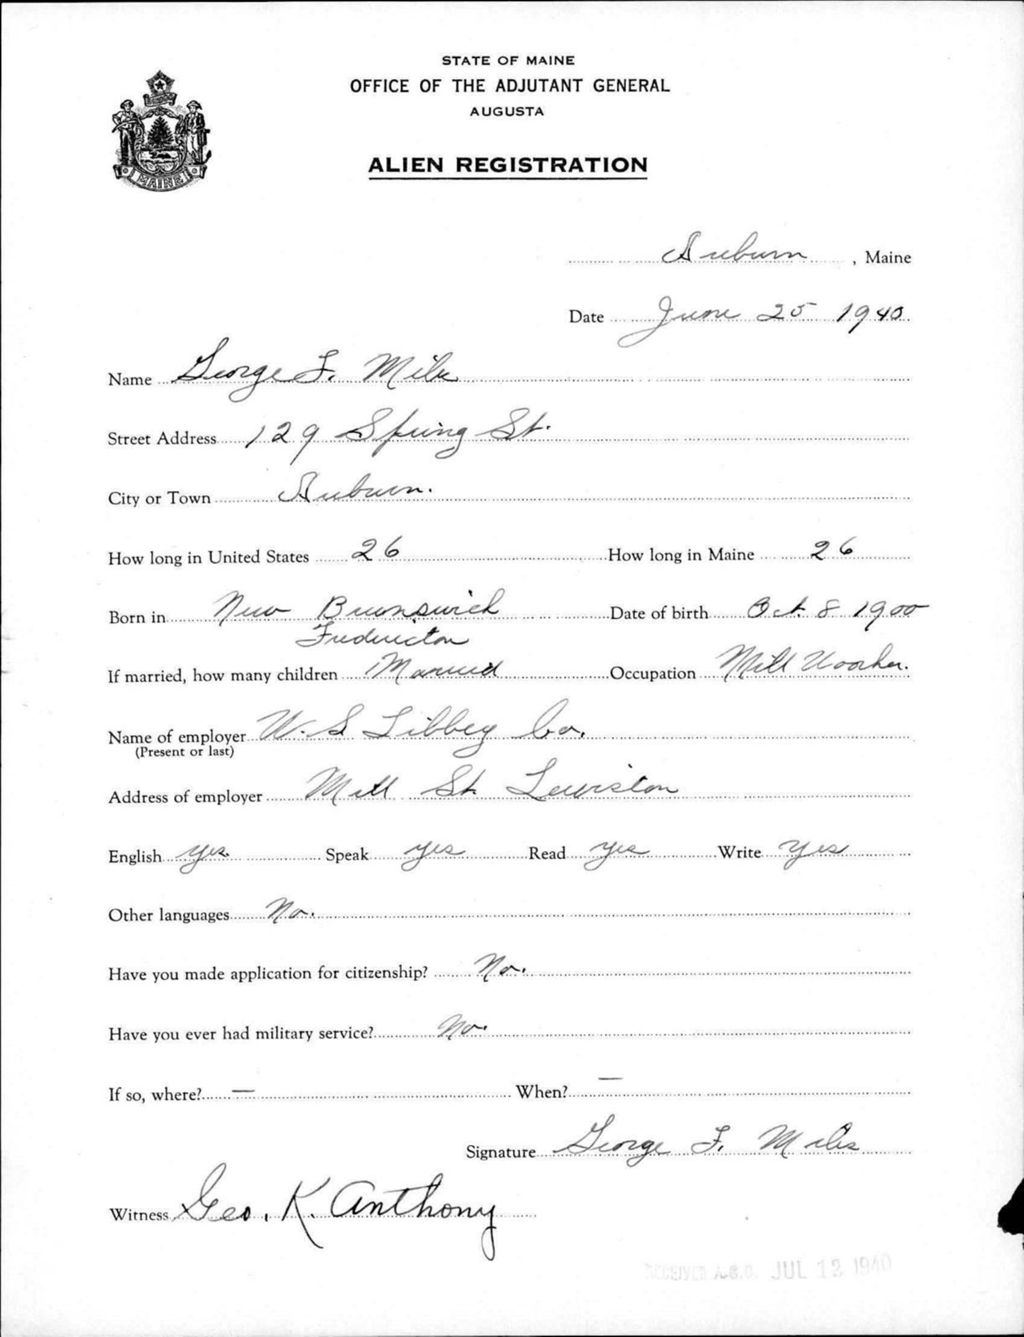 STATE OF MAINE
OFFICE OF THE ADJUTANT GENERAL
AUGUSTA
ALIEN REGISTRATION
MAINE
Auburn, Maine
Date June 25 1940
Name George F. Miles
Street Address 129 Spring St.
City or Town Auburn.
How long in United States 26 How long in Maine 26
Born in New Brunswick Date of birth Oct. 8 1900
Fredericton
If married, how many children Married Occupation Mill Worker.
Name of employer W. S Libbey Co.
(Present or last)
Address of employer Mill St. Lewiston
English Yes Speak Yes Read Yes Write Yes
Other languages No.
Have you made application for citizenship? No.
Have you ever had military service? No.
If so, where? — When? —
Signature George F. Miles
Witness Geo. K. Anthony
RECEIVED A.G.O. JUL 12 1940